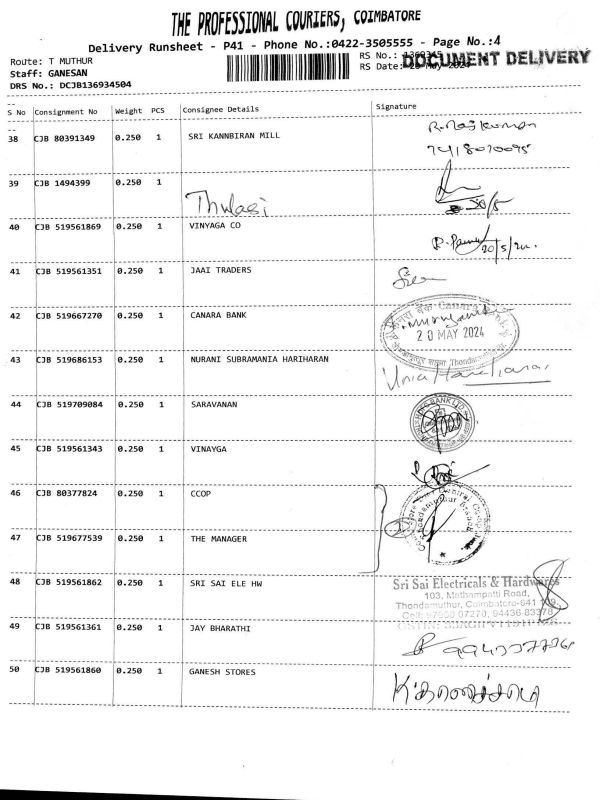 THE PROFESSIONAL COURIERS, COIMBATORE
Delivery Runsheet - P41 - Phone No.:0422-3505555 - Page No.:4
Route: T MUTHUR
Staff: GANESAN
DRS No.: DCJB136934504
RS No.:
RS Date: 20-May-2024
DOCUMENT DELIVERY
S No Consignment No Weight PCS Consignee Details Signature
38 CJB 80391349 0.250 1 SRI KANNBIRAN MILL
R.Rajkumar
7418070095
39 CJB 1494399 0.250 1
Thulasi
20/5
40 CJB 519561869 0.250 1 VINYAGA CO
20/5/24.
41 CJB 519561351 0.250 1 JAAI TRADERS
42 CJB 519667270 0.250 1 CANARA BANK
20 MAY 2024
43 CJB 519686153 0.250 1 NURANI SUBRAMANIA HARIHARAN
Hariharan
44 CJB 519709084 0.250 1 SARAVANAN
45 CJB 519561343 0.250 1 VINAYGA
46 CJB 80377824 0.250 1 CCOP
47 CJB 519677539 0.250 1 THE MANAGER
48 CJB 519561862 0.250 1 SRI SAI ELE HW
Sri Sai Electricals & Hardwares
103, Mathampatti Road,
Thondamuthur, Coimbatore-641 109.
07270, 94436 83378
49 CJB 519561361 0.250 1 JAY BHARATHI
50 CJB 519561860 0.250 1 GANESH STORES